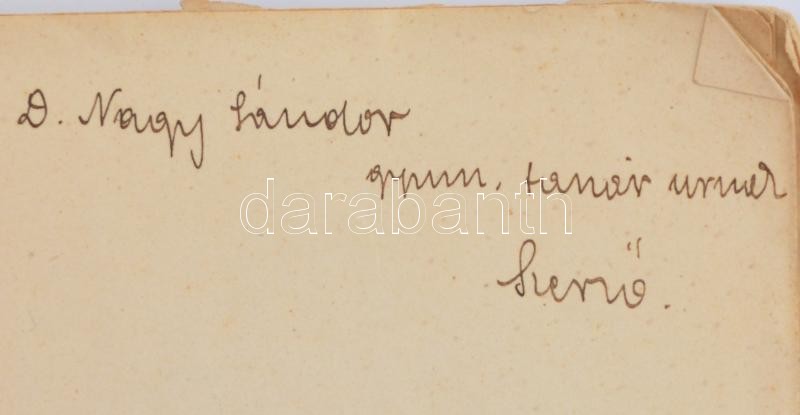 D. Nagy Sándor
gymn. tanár urnak
darabanth
Szerző.